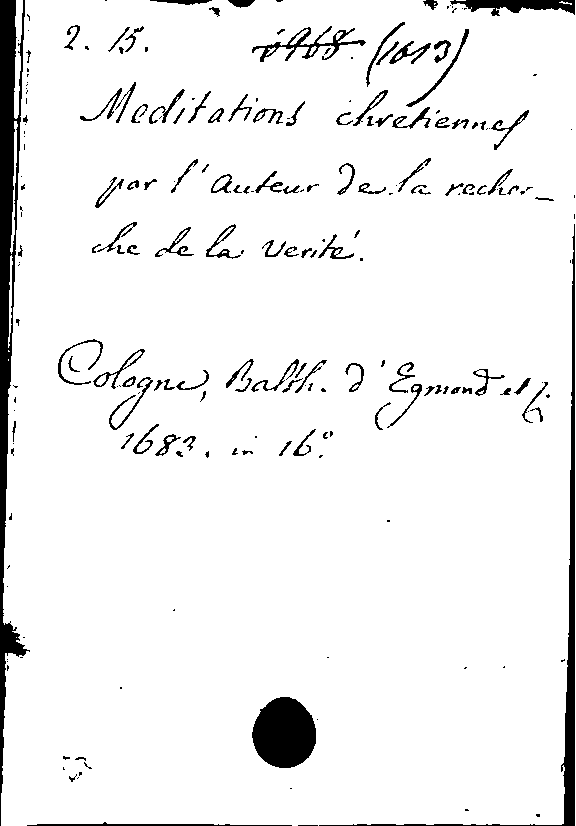 2. 15. (1013)
Meditations chretiennes
par l'auteur de la recher-
che de la verité.
Cologne, Balth. d'Egmond et
1683. in 16°.